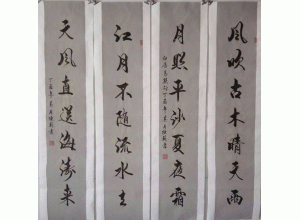 风吹古木晴天雨
月照平沙夏夜霜
江月不随流水去
天风直送海涛来